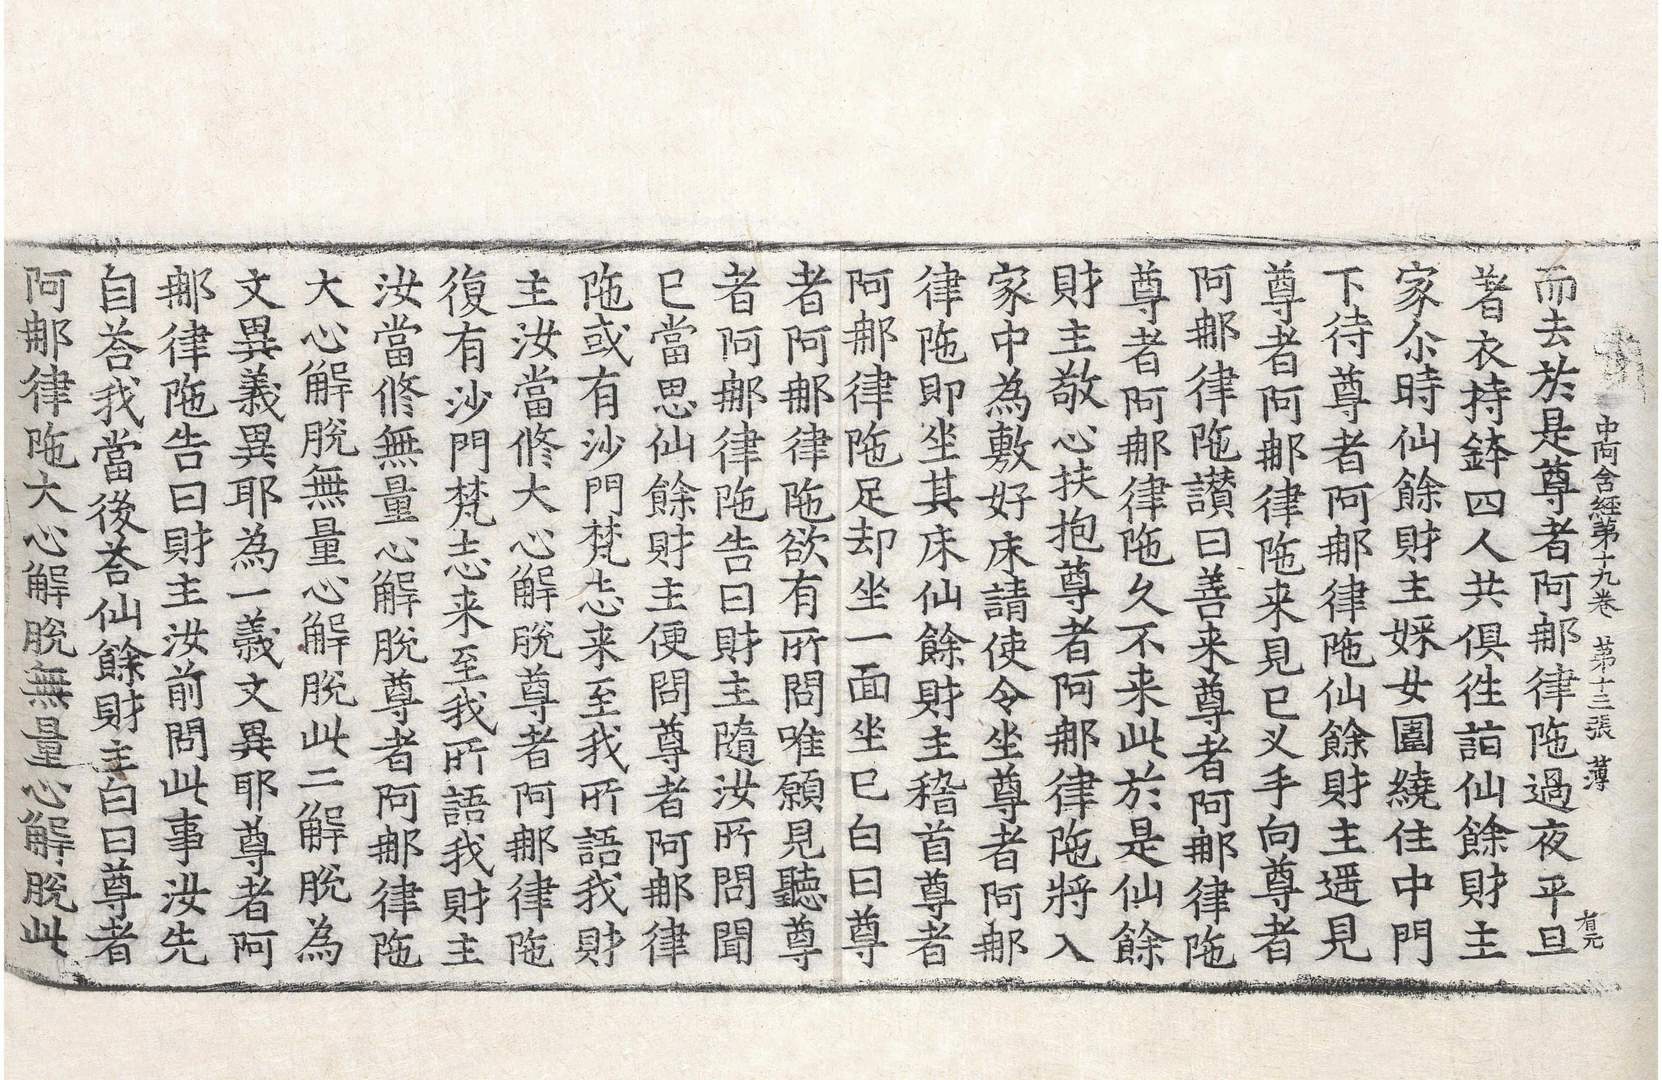 中阿含經第十九卷　第十三張　薄
有元
而去於是尊者阿䣸律陁過夜平旦
著衣持鉢四人共俱徃詣仙餘財主
家尒時仙餘財主婇女圍繞住中門
下待尊者阿䣸律陁仙餘財主遥見
尊者阿䣸律陁来見已叉手向尊者
阿䣸律陁讃曰善来尊者阿䣸律陁
尊者阿䣸律陁久不来此於是仙餘
財主敬心扶抱尊者阿䣸律陁將入
家中為敷好床請使令坐尊者阿䣸
律陁即坐其床仙餘財主稽首尊者
阿䣸律陁足却坐一面坐已白曰尊
者阿䣸律陁欲有所問唯願見聽尊
者阿䣸律陁告曰財主隨汝所問聞
已當思仙餘財主便問尊者阿䣸律
陁或有沙門梵志来至我所語我財
主汝當修大心解脫尊者阿䣸律陁
復有沙門梵志来至我所語我財主
汝當修無量心解脫尊者阿䣸律陁
大心解脫無量心解脫此二解脫為
文異義異耶為一義文異耶尊者阿
䣸律陁告曰財主汝前問此事汝先
自荅我當後荅仙餘財主白曰尊者
阿䣸律陁大心解脫無量心解脫此